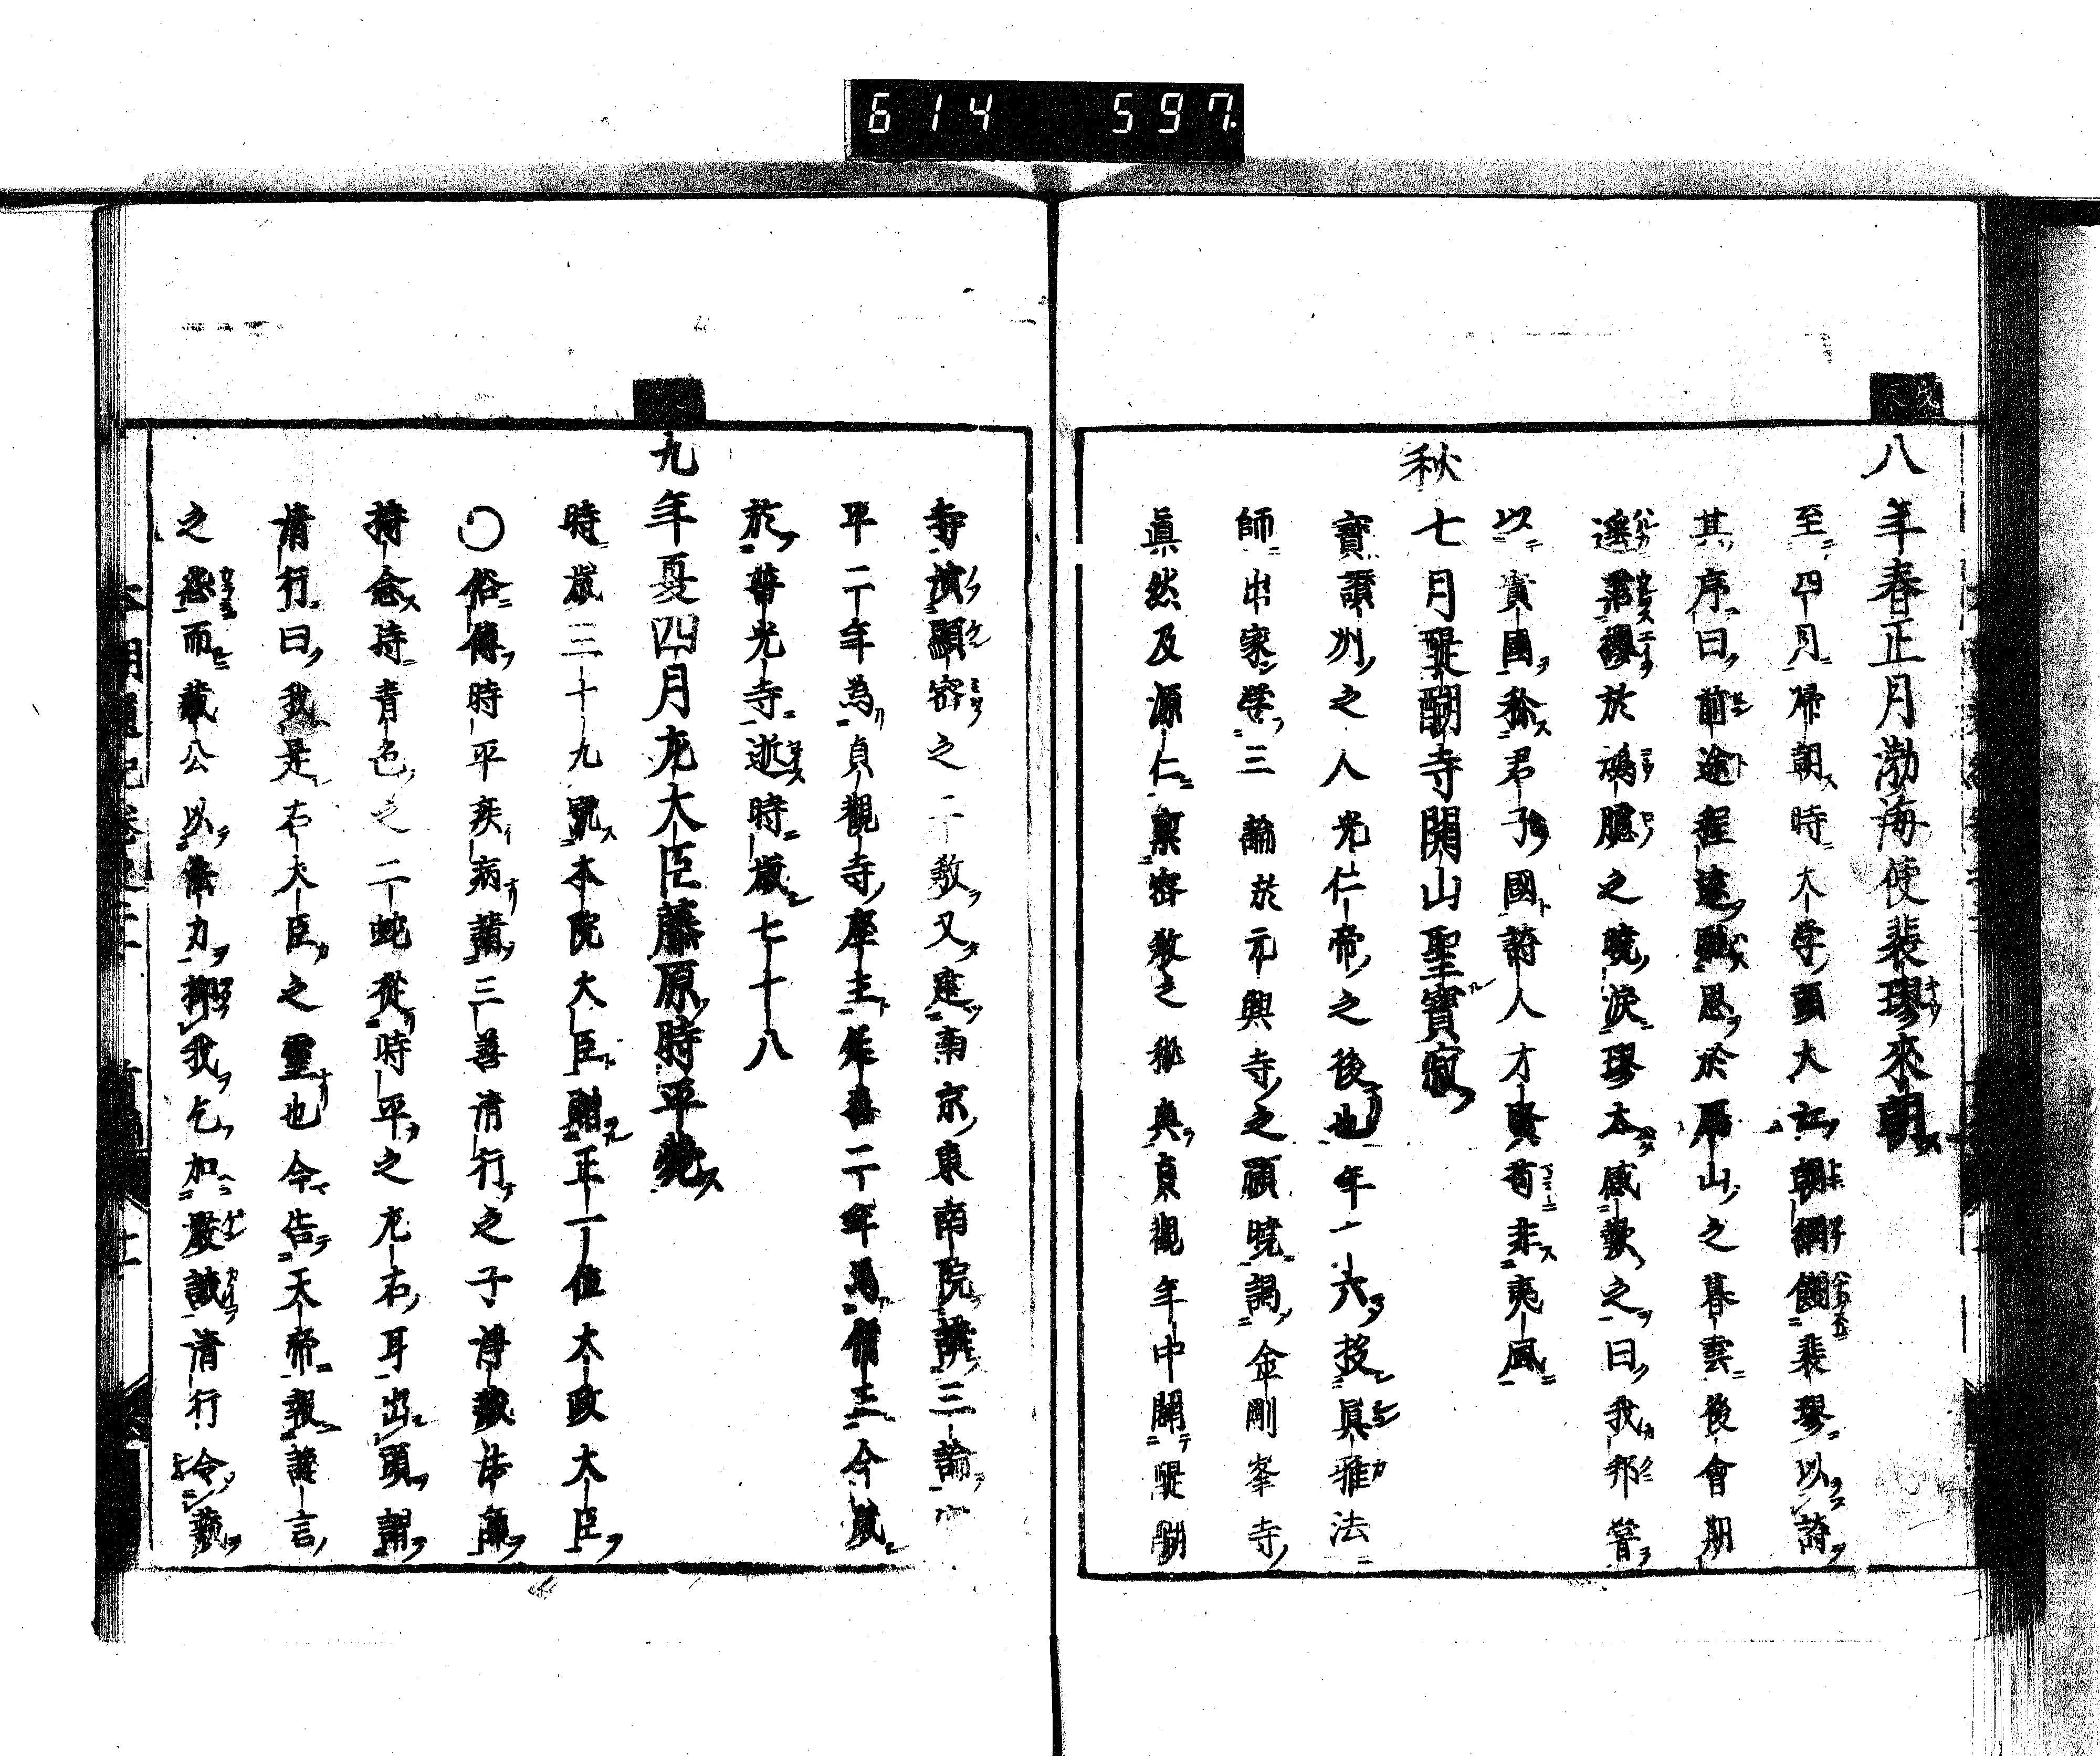 614 597
八年春正月渤海使裴璆來朝
至四月帰朝時大学頭大江朝綱餞裴璆以詩
其序曰前途程遠馳思於鴈山之暮雲後會期
遙霑纓於鴻臚之曉淚璆太感歎之曰我邦嘗
以貴國称君子國詩人才賢苟非夷風
秋七月醍醐寺開山聖寶寂
寶讃州之人光仁帝之後也年十六投眞雅法
師出家学三論於元興寺之願曉謁金剛峯寺
眞然及源仁稟密教之秘奥貞觀年中開醍醐
寺演顯密之二教又建南京東南院講三論
平二年為貞觀寺座主延喜二年為僧正今歳
於普光寺逝時歳七十八
九年夏四月左大臣藤原時平薨
時歳三十九號本院大臣贈正一位太政大臣
○俗傳時平疾病請三善清行之子淨藏告禱
持念時青色之二蛇從時平之左右耳出頭謂
清行曰我是右大臣之靈也今告天帝報讒言
之怨而藏公以法力抑我乞加嚴誡清行令藏
本朝通紀卷